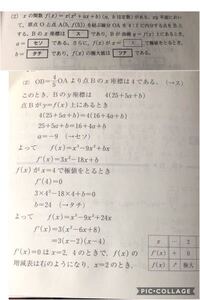 (2) xの関数 f(x)=x(x²+ax+b) (a, bは定数) がある。xy平面において、
原点Oと点A(5, f(5))を結ぶ線分OAを
に内分する点をBと
する。Bのx座標は ス
a= セソ である。さらに、f(x)がx= ス で極値をとるとき、
b= タチ であり、f(x)の極大値は ツテ である。
(2) OD=4/5 OAより点Bのx座標は4である。(→ス)
このとき、Bのy座標は 4(25+5a+b)
点Bがy=f(x)上にあるとき
4(25+5a+b)=4(16+4a+b)
25+5a+b=16+4a+b
a=−9 (→セソ)
よって f(x)=x³−9x²+bx
f'(x)=3x²−18x+b
f(x)がx=4で極値をとるとき
f'(4)=0
3×4²−18×4+b=0
b=24 (→タチ)
よって f(x)=x³−9x²+24x
f'(x)=3(x²−6x+8)
=3(x−2)(x−4)
f'(x)=0はx=2, 4のときで、f(x)の
増減表は右のようになり、x=2のとき、
x … 2
f'(x) + 0
f(x) ↗ 極大
PIC•COLLAGE